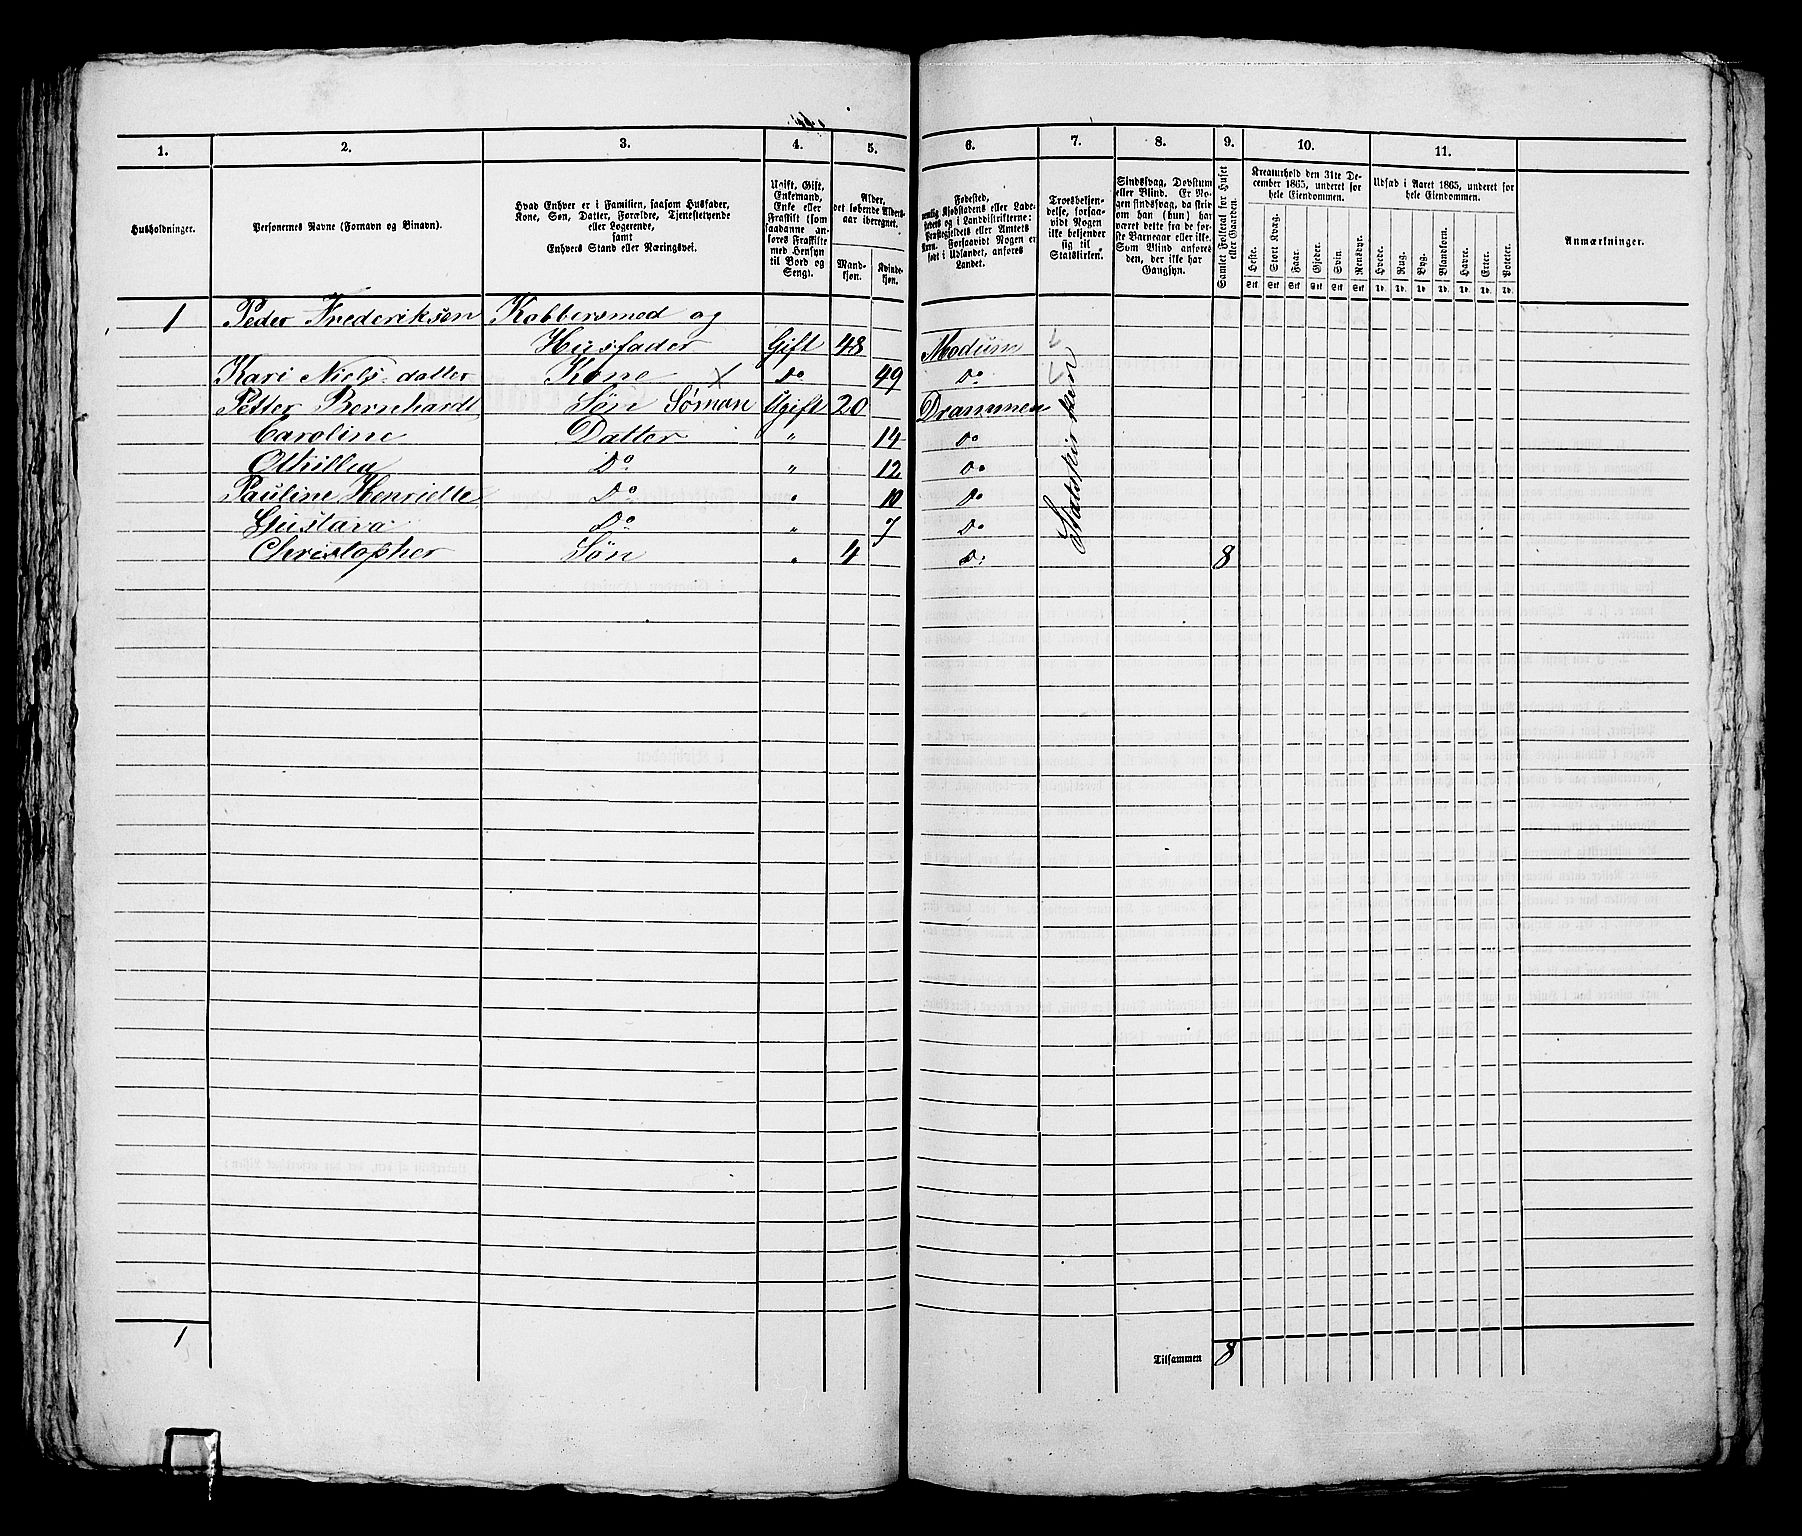 1. 2. 3. 4. 5. 6. 7. 8. 9. 10. 11.
Husholdninger.
Personernes Navne (Fornavn og Binavn).
Hvad Enhver er i Familien, saasom Husfader,
Kone, Søn, Datter, Forældre, Tjenestetyende
eller Logerende,
samt
Enhvers Stand eller Næringsvei.
Ugift, Gift,
Enkemand,
Enke eller
Fraskilt (som
saadanne an-
føres Fraskilte
med Hensyn
til Bord og
Seng).
Alder,
det løbende Alders-
aar iberegnet.
Mand-
kjøn.
Kvinde-
kjøn.
Fødested,
nemlig Kjøbstadens eller Lade-
stedets og i Landdistrikterne:
Præstegjeldets eller Amtets
Navn. Forsaavidt Nogen er
født i Udlandet, anføres
Landet.
Troesbekjen-
delse, forsaa-
vidt Nogen
ikke bekjender
sig til
Statskirken.
Sindssvag, Døvstum
eller Blind. Er No-
gen sindssvag, da skri-
om han (hun) har
været dette fra de før-
ste Barneaar eller ikke.
Som Blind anføres
den, der ikke har
Gangsyn.
Samlet Folketal for Huset
eller Gaarden.
Kreaturhold den 31te De-
cember 1865, underet for
hele Eiendommen.
Heste. Stort Kvæg. Faar. Gjeder. Svin. Rensdyr.
Stk. Stk. Stk. Stk. Stk. Stk.
Udsæd i Aaret 1865, underet for
hele Eiendommen.
Hvede. Rug. Byg. Blandkorn. Havre. Erter. Poteter.
Td. Td. Td. Td. Td. Td. Td.
Anmærkninger.
1 Peder Frederiksen Kobbersmed og
Husfader Gift 48 Modum
Kari Niels datter Kone X Do 49 Do
Petter Bernhardt Søn Søman Ugift 20 Drammen
Caroline Datter " 14 Do
Othillia Do " 12 Do
Pauline Henriette Do " 10 Do
Gustava Do " 7 Do
Christopher Søn " 4 D: 8
Statskirken
1 Tilsammen 8